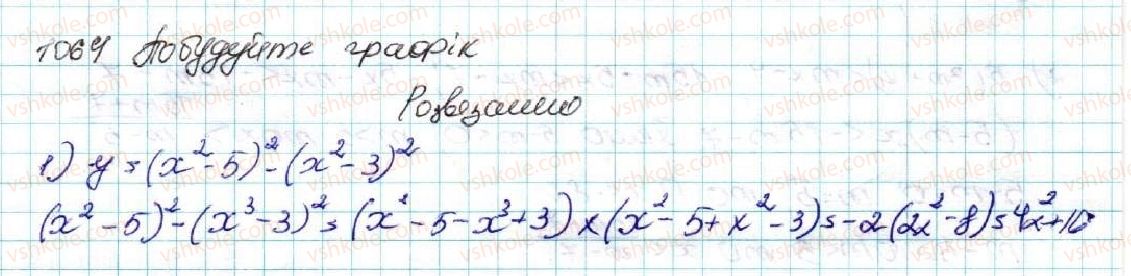 1064 Побудуйте графік
Розвязанню
1) y = (x² - 5)² - (x² - 3)²
(x² - 5)² - (x³ - 3)² = (x² - 5 - x³ + 3) × (x² - 5 + x² - 3) = -2(2x² - 8) = 4x² + 16